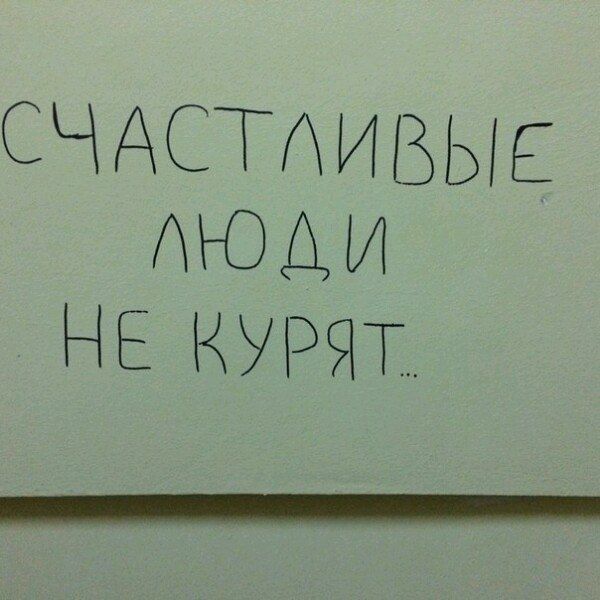 СЧАСТЛИВЫЕ
ЛЮДИ
НЕ КУРЯТ...